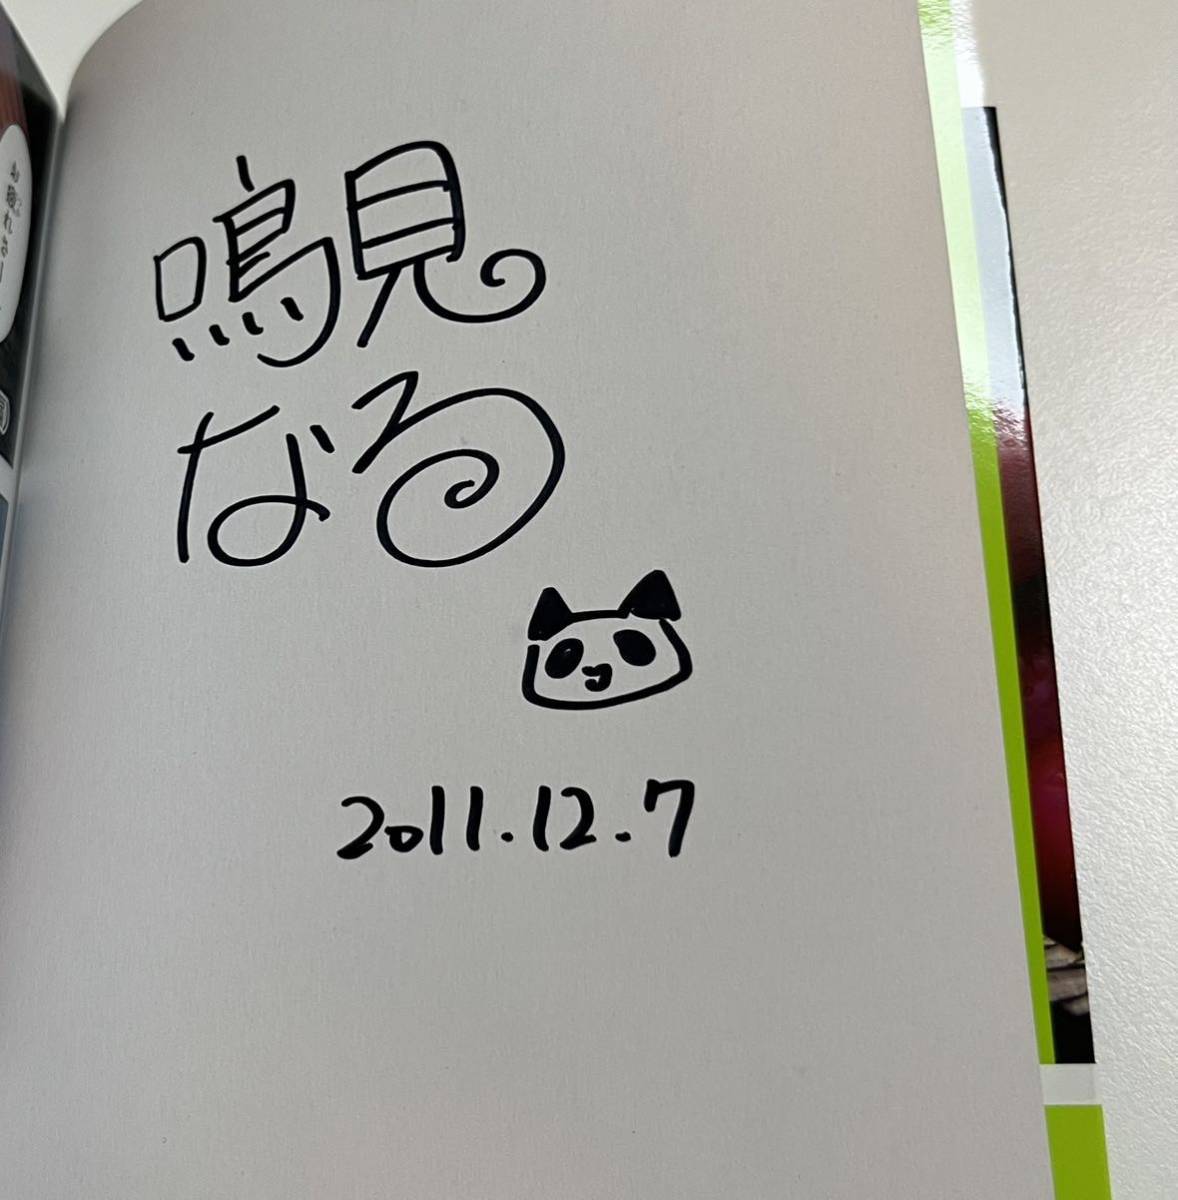 鳴見
なる
2011.12.7